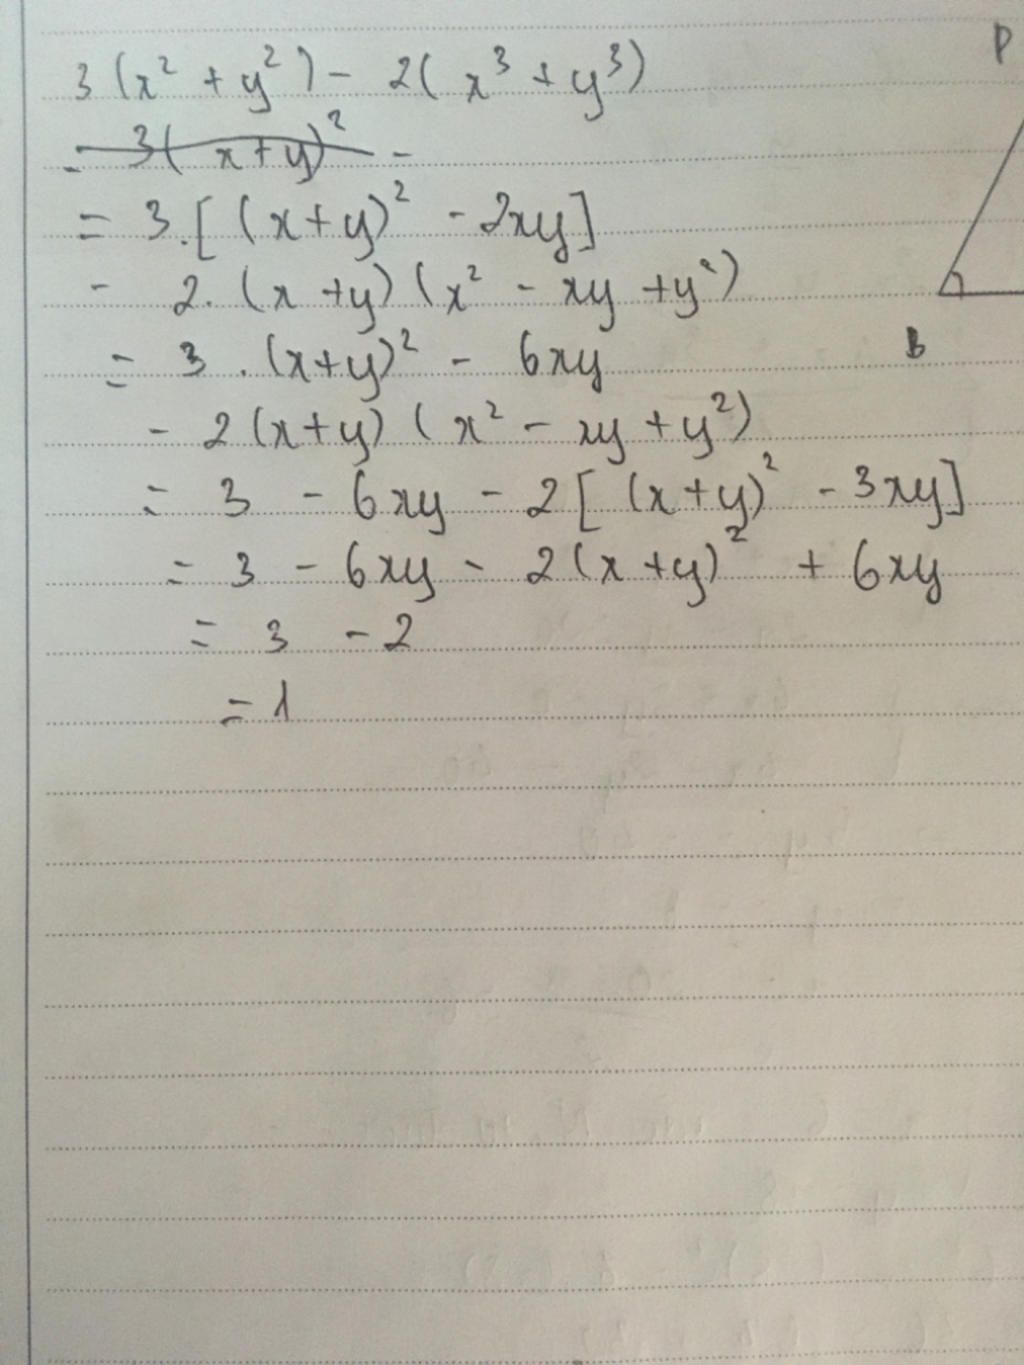 3(x² + y²) - 2(x³ + y³)
= 3(x+y)² -
= 3.[(x+y)² - 2xy]
- 2.(x+y)(x² - xy + y²)
= 3.(x+y)² - 6xy
- 2(x+y)(x² - xy + y²)
= 3 - 6xy - 2[(x+y)² - 3xy]
= 3 - 6xy - 2(x+y)² + 6xy
= 3 - 2
= 1
D
B